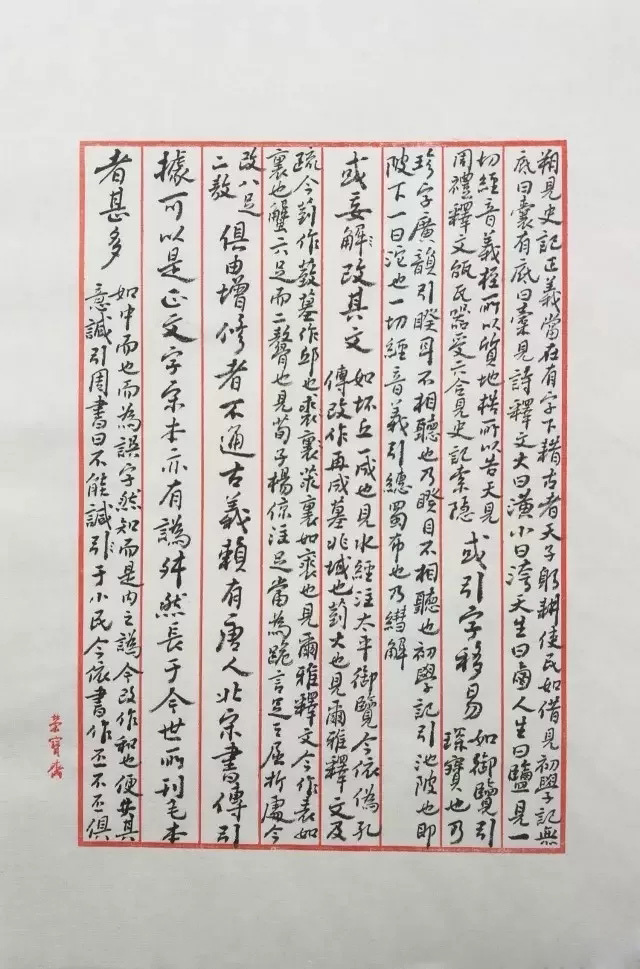 朔見史記正義當在有字下耤古者天子躬耕使民如借見初學記無
底曰囊有底曰橐見詩釋文大曰潢小曰洿天生曰鹵人生曰鹽見一
切經音義桎所以質地梏所以告天見
周禮釋文瓴瓦器受六合見史記索隱
或引字移易
如御覽引
琛寶也乃
珍字廣韻引睽耳不相聽也乃暌目不相聽也初學記引池陂也即
陂下一曰沱也一切經音義引繐蜀布也乃䌨解
或妄解改其文
如坏丘一成也見水經注太平御覽今依偽孔
傳改作再成墓兆域也䔭大也見爾雅釋文及
疏今䔭作䔭墓作邱也裘裏如裘也見爾雅釋文今作表如
裏也蟹六足而二螯也見荀子楊倞注足當為跪言足之屈折處今
改八足
二敖
俱由增修者不通古義賴有唐人北宋書傳引
據可以是正文字宋本亦有譌舛然長于今世所刊毛本
者甚多
如中而也而為誤字然知而是內之譌今改作和也便失其
意諴引周書曰不能諴引于小民今依書作丕不丕俱
榮寶齋